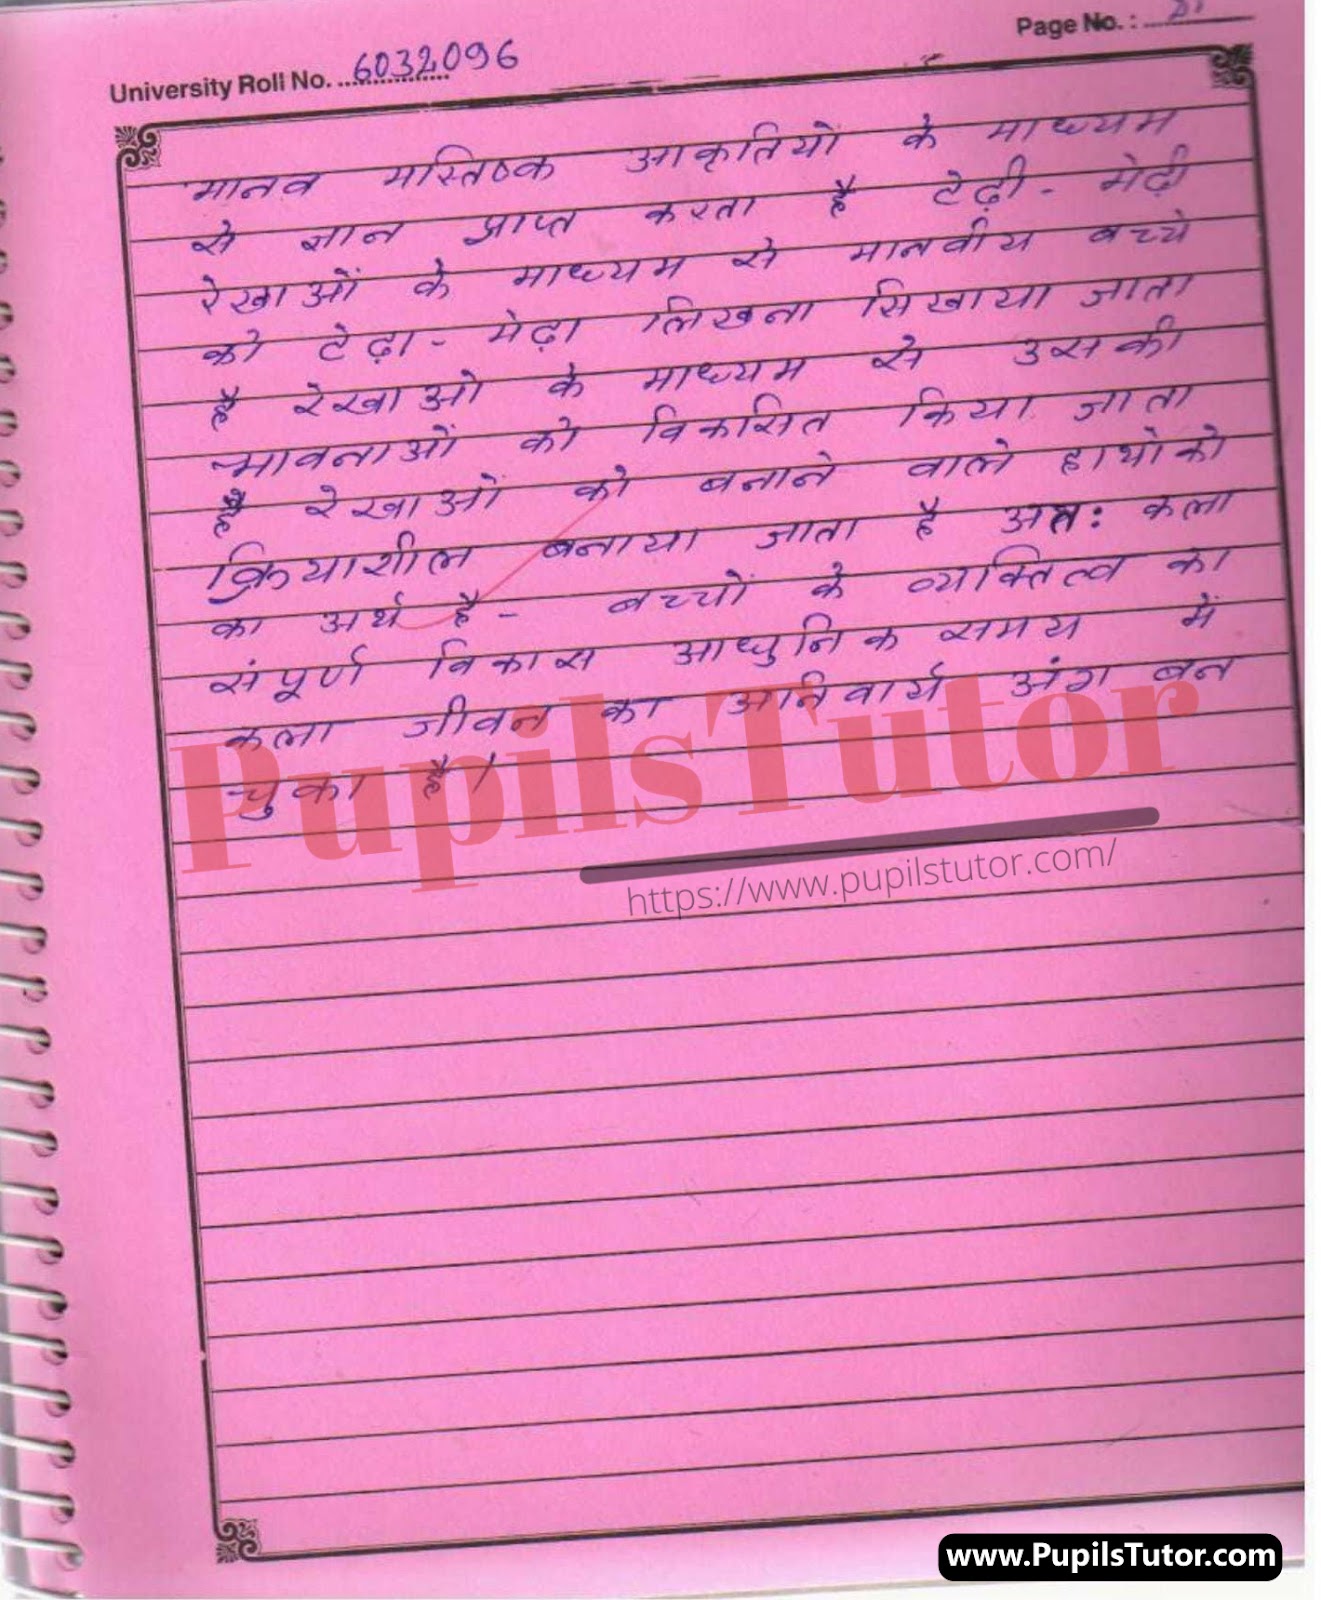 University Roll No. 6032096
Page No. :
मानव मस्तिष्क आकृतियों के माध्यम
से ज्ञान प्राप्त करता है टेढ़ी - मेढ़ी
रेखाओं के माध्यम से मानवीय बच्चे
को टेढ़ा - मेढ़ा लिखना सिखाया जाता
है रेखाओ के माध्यम से उसकी
भावनाओं को विकसित किया जाता
है रेखाओं को बनाने वाले हाथोको
क्रियाशील बनाया जाता है अतः कला
का अर्थ है - बच्चों के व्यक्तित्व का
संपूर्ण विकास आधुनिक समय में
कला जीवन का अनिवार्य अंग बन
चुका है।
PupilsTutor
https://www.pupilstutor.com/
www.PupilsTutor.com